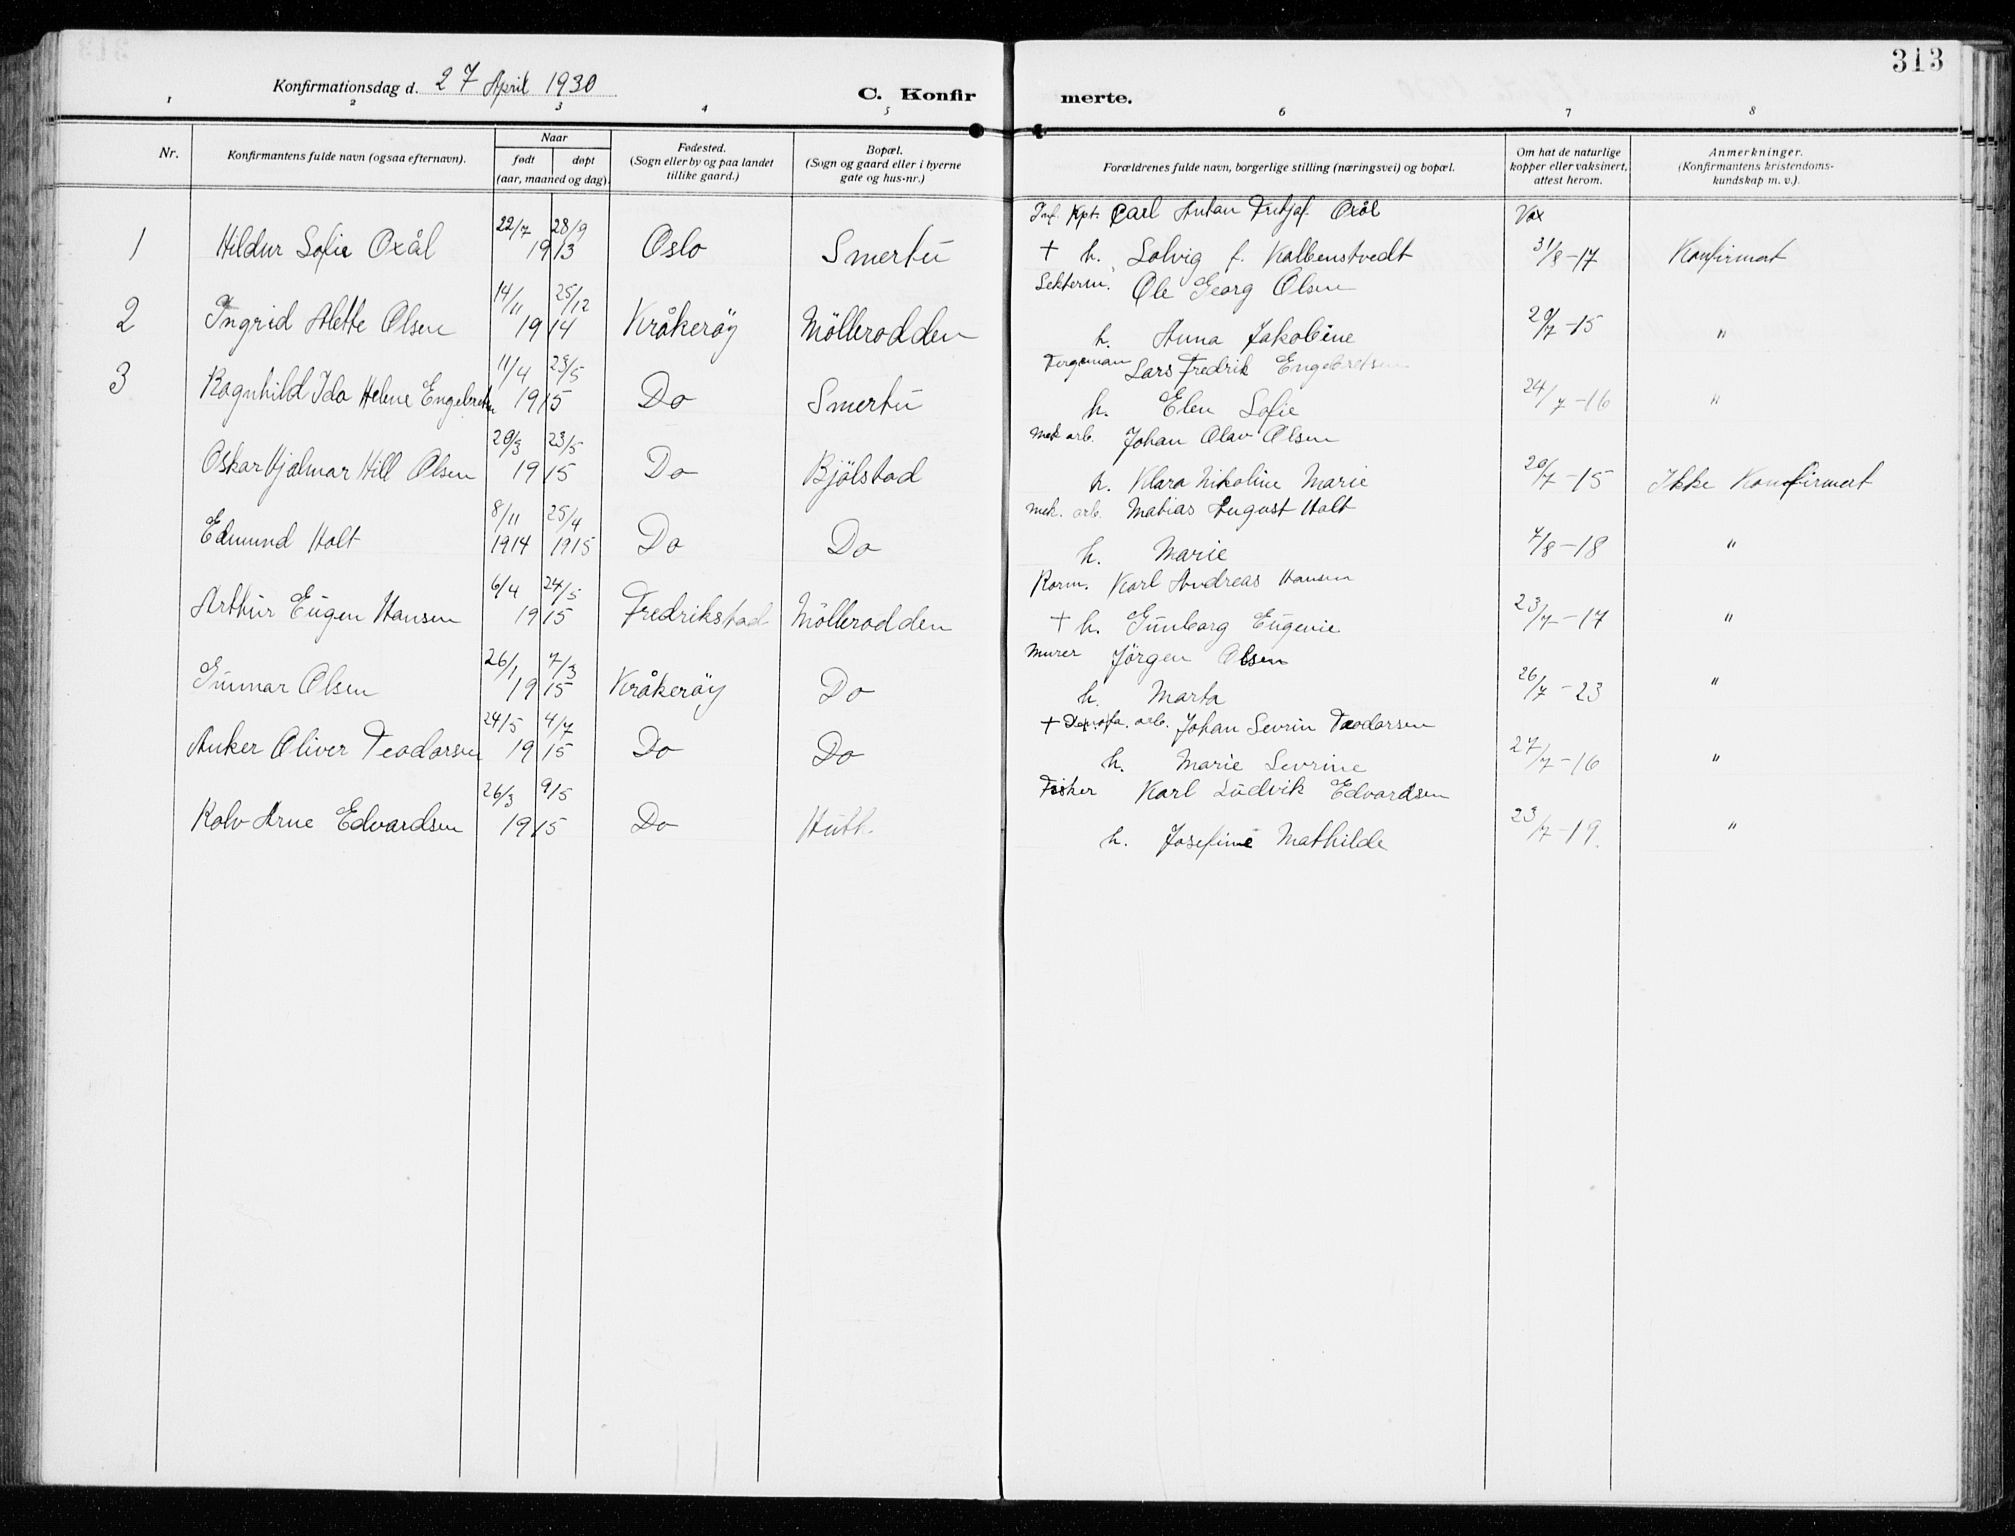 313
Konfirmationsdag d. 27 April 1930
C. Konfir merte.
1 2 3 4 5 6 7 8
Nr. Konfirmantens fulde navn (ogsaa efternavn). Naar født døpt (aar, maaned og dag). Fødested. (Sogn eller by og paa landet tillike gaard.) Bopæl. (Sogn og gaard eller i byerne gate og hus-nr.) Forældrenes fulde navn, borgerlige stilling (næringsvei) og bopæl. Om hat de naturlige kopper eller vaksinert, attest herom. Anmerkninger. (Konfirmantens kristendoms-kundskap m. v.).
22/7 28/9 Inf. Kpt. Carl Anton Fritjof Oxål Vax
1 Hildur Sofie Oxål 1913 Oslo Smertu + h. Solvig f. Kolbenstvedt 31/8-17 Konfirmert
14/11 25/12 Ole Georg Olsen
2 Ingrid Alette Olsen 1914 Kråkeröy Möllerodden h. Anna Jakobine 29/7-15 "
11/4 23/5 Fergeman Lars Fredrik Engebretsen
3 Ragnhild Ida Helene Engebretsen 1915 Do Smertu h. Elen Sofie 24/7-16 "
20/3 23/5 Mek arb. Johan Olav Olsen
Oskar Hjalmar Hill Olsen 1915 Do Bjölstad h. Klara Nikoline Marie 20/7-15 Ikke Konfirmert
8/11 25/4 Mek. arb. Matias August Holt
Edmund Holt 1914 1915 Do Do h. Marie 7/8-18 "
6/4 24/5 Korm. Karl Andreas Hansen
Arthur Eugen Hansen 1915 Fredrikstad Möllerodden + h. Gunborg Eugenie 23/7-17 "
26/1 7/3 Murer Jörgen Olsen
Gunnar Olsen 1915 Kråkeröy Do h. Marta 26/7-23 "
24/5 4/7 + arb. Johan Sevrin Teodorsen
Anker Oliver Teodorsen 1915 Do Do h. Marie Sevrine 27/7-16 "
26/3 9/5 Fisker Karl Ludvik Edvardsen
Rolv Arne Edvardsen 1915 Do Huth. h. Josefine Mathilde 23/7-19. "